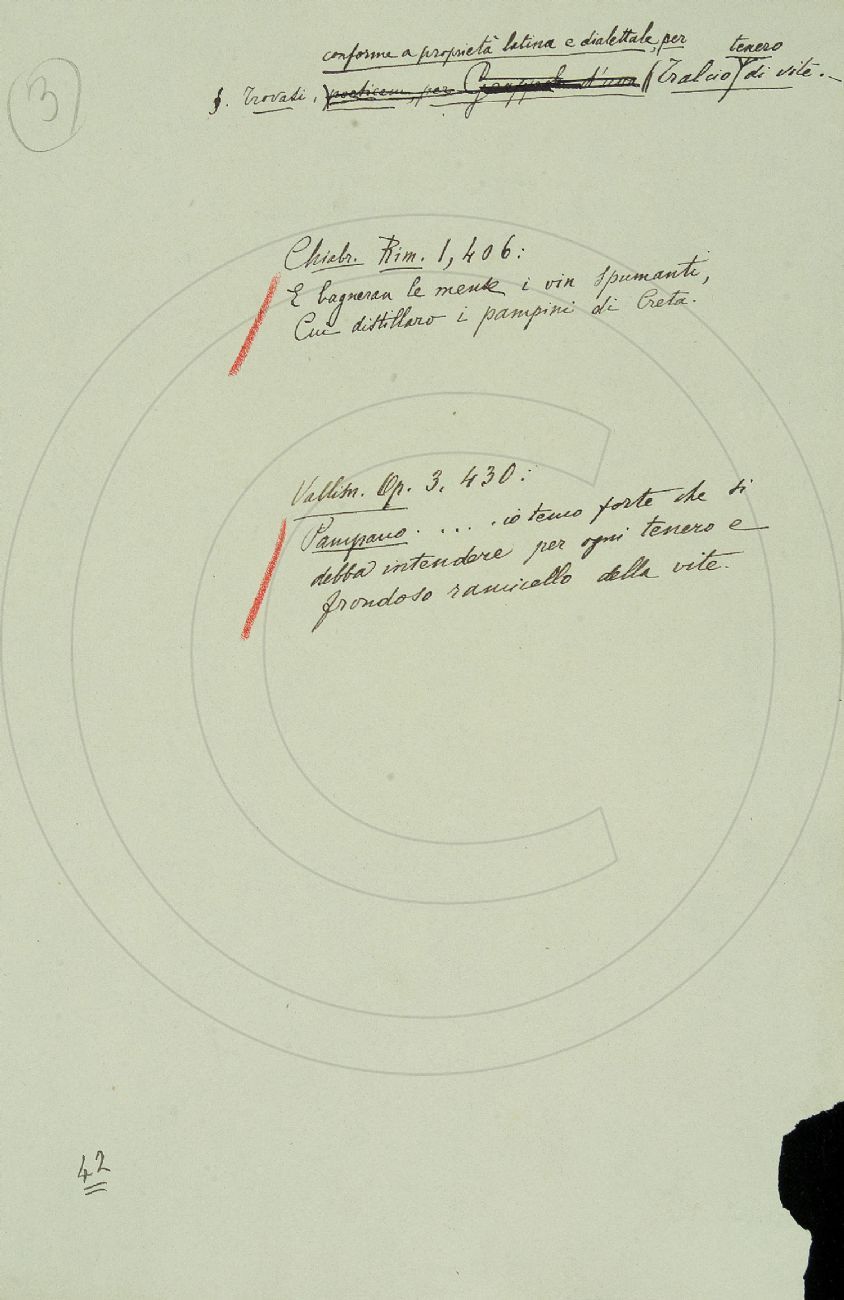 3
conforme a proprietà latina e dialettale, per tenero
§. Trovasi, poeticam., per Grappolo d'uva (Tralcio) di vite. _
Chiabr. Rim. 1, 406:
E bagneran le mense i vin spumanti,
Cui distillaro i pampini di Creta.
Vallisn. Op. 3. 430:
Pampano . . . . . io temo forte che si
debba intendere per ogni tenero e
frondoso ramicello della vite.
42